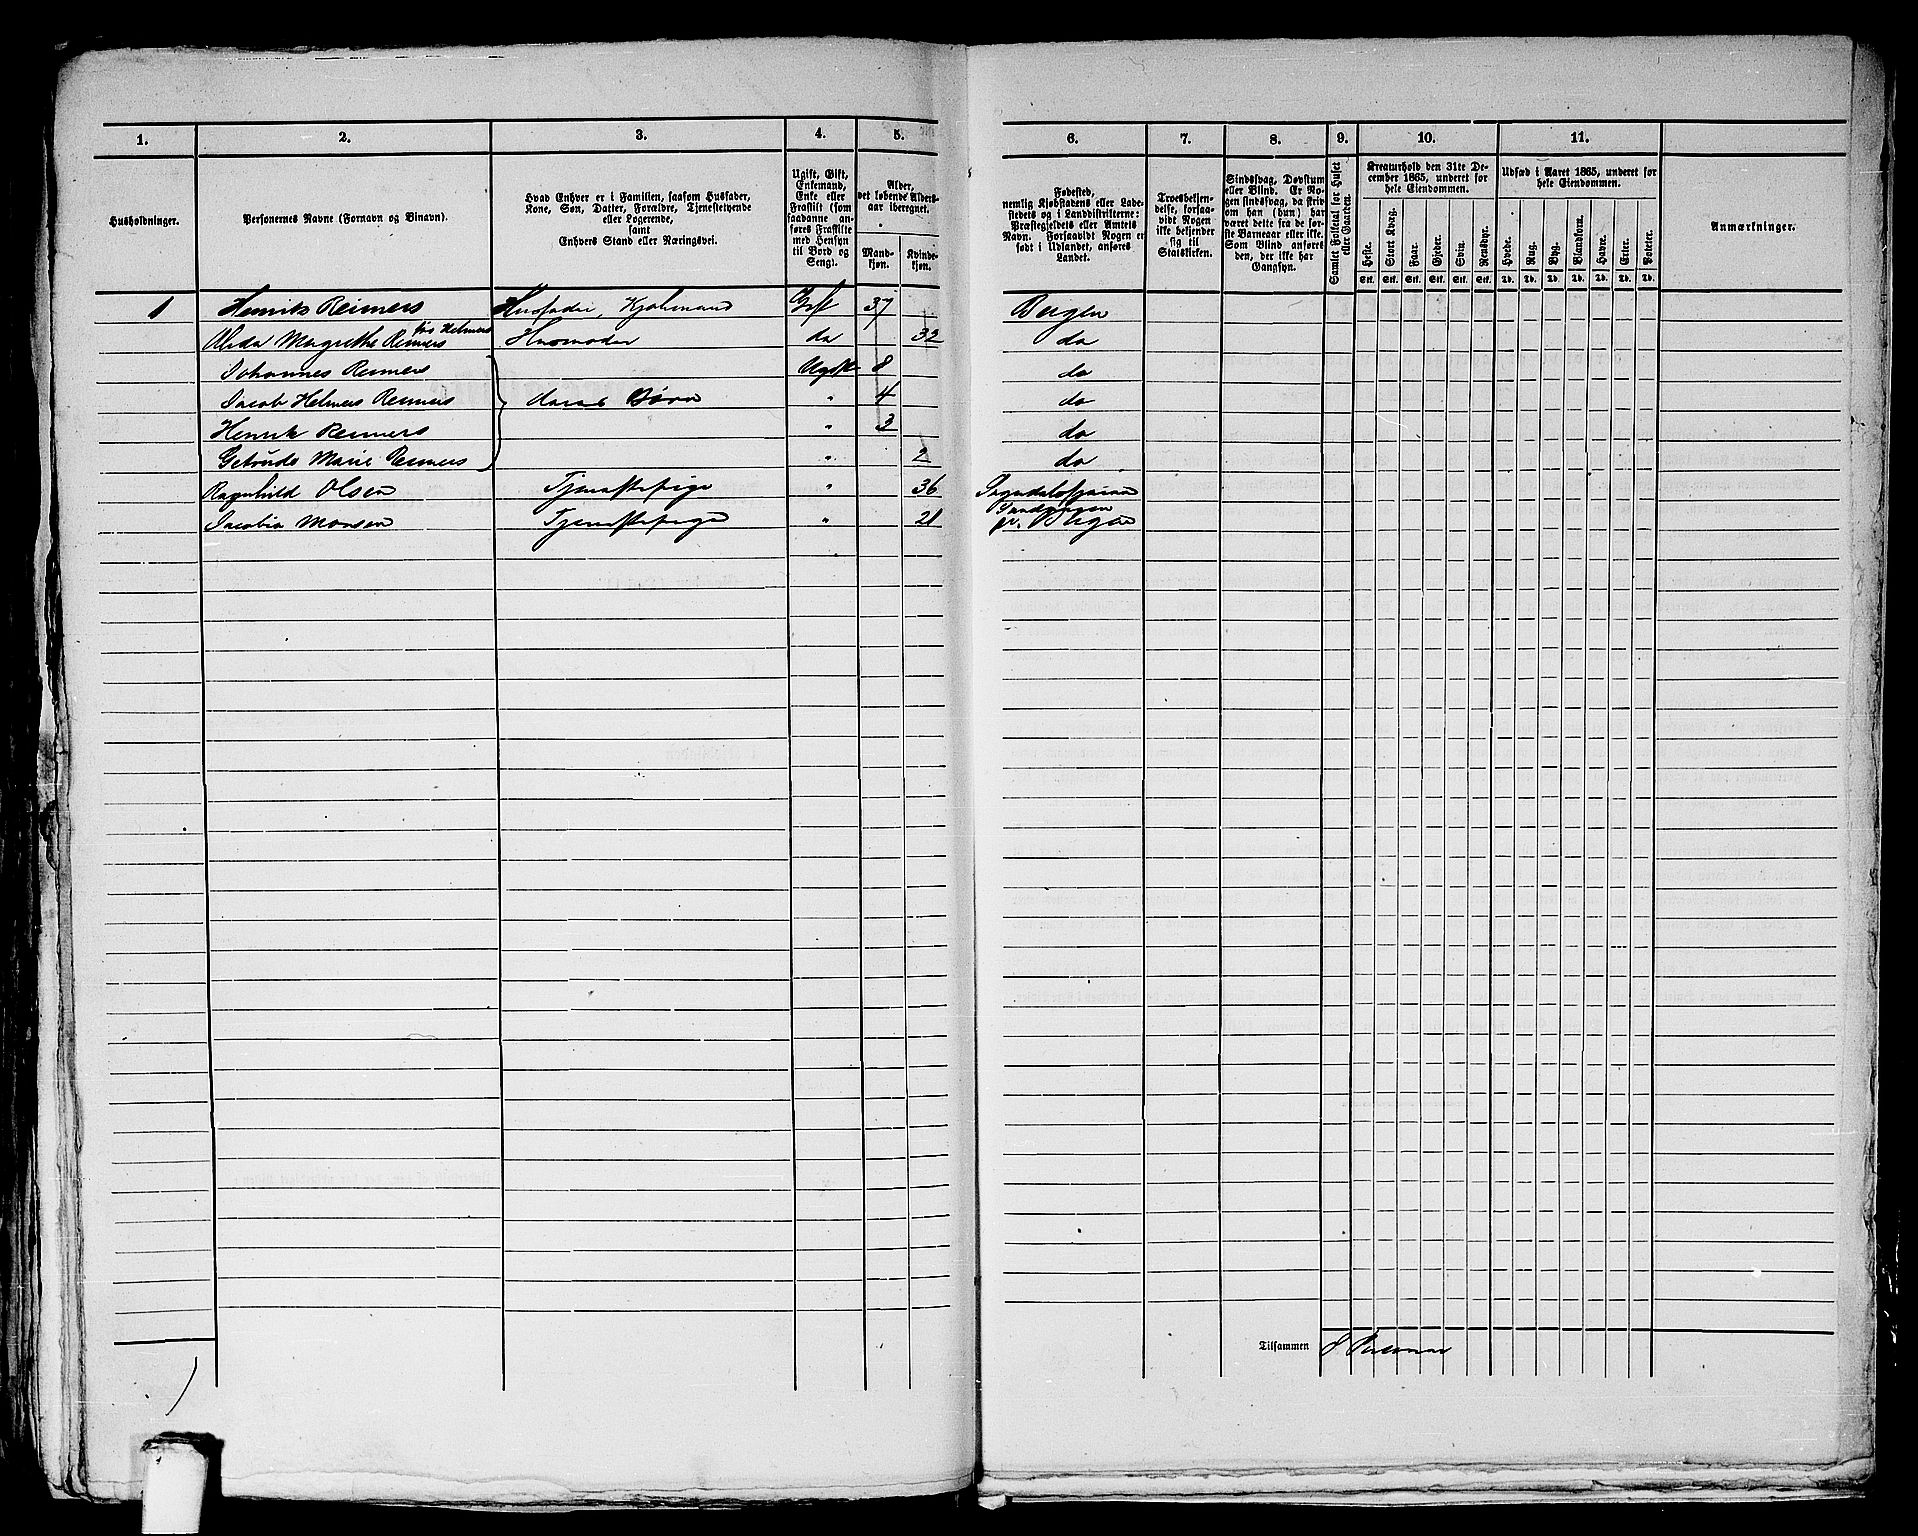 1. 2. 3. 4. 5. 6. 7. 8. 9. 10. 11.
Husholdninger.
Personernes Navne (Fornavn og Binavn).
Hvad Enhver er i Familien, saasom Husfader,
Kone, Søn, Datter, Forældre, Tjenestetyende
eller Logerende,
samt
Enhvers Stand eller Næringsvei.
Ugift, Gift,
Enkemand,
Enke eller
Fraskilt (som
saadanne an-
føres Fraskilte
med Hensyn
til Bord og
Seng).
Alder,
det løbende Alders-
aar iberegnet.
Mand-
kjøn.
Kvinde-
kjøn.
Fødested,
nemlig Kjøbstadens eller Lade-
stedets og i Landdistrikterne:
Præstegjeldets eller Amtets
Navn. Forsaavidt Nogen er
født i Udlandet, anføres
Landet.
Troesbekjen-
delse, forsaa-
vidt Nogen
ikke bekjender
sig til
Statskirken.
Sindssvag, Døvstum
eller Blind. Er No-
gen sindssvag, da skri-
ves om han (hun) har
været dette fra de før-
ste Barneaar eller ikke.
Som Blind anføres
den, der ikke har
Gangsyn.
Samlet Folketal for Huset
eller Gaarden.
Kreaturhold den 31te De-
cember 1865, underet for
hele Eiendommen.
Heste. Stort Kvæg. Faar. Gjeder. Svin. Rensdyr.
Stk. Stk. Stk. Stk. Stk. Stk.
Udsæd i Aaret 1865, underet for
hele Eiendommen.
Hvede. Rug. Byg. Blandkorn. Havre. Erter. Poteter.
Td. Td. Td. Td. Td. Td. Td.
Anmærkninger.
1 Henrik Reimers Husfader, Kjøbmand Gift 37 Bergen
Alida Magrethe Reimers født Helmers Husmoder do 32 do
Johannes Reimers Ugift 8 do
Jacob Helmers Reimers deres Børn " 4 do
Henrik Reimers " 3 do
Getrude Marie Reimers " 2 do
Ragnhild Olsen Tjenestepige " 36
Jacobia Monsen Tjenestepige " 21 Bergen
Tilsammen 8 Personer